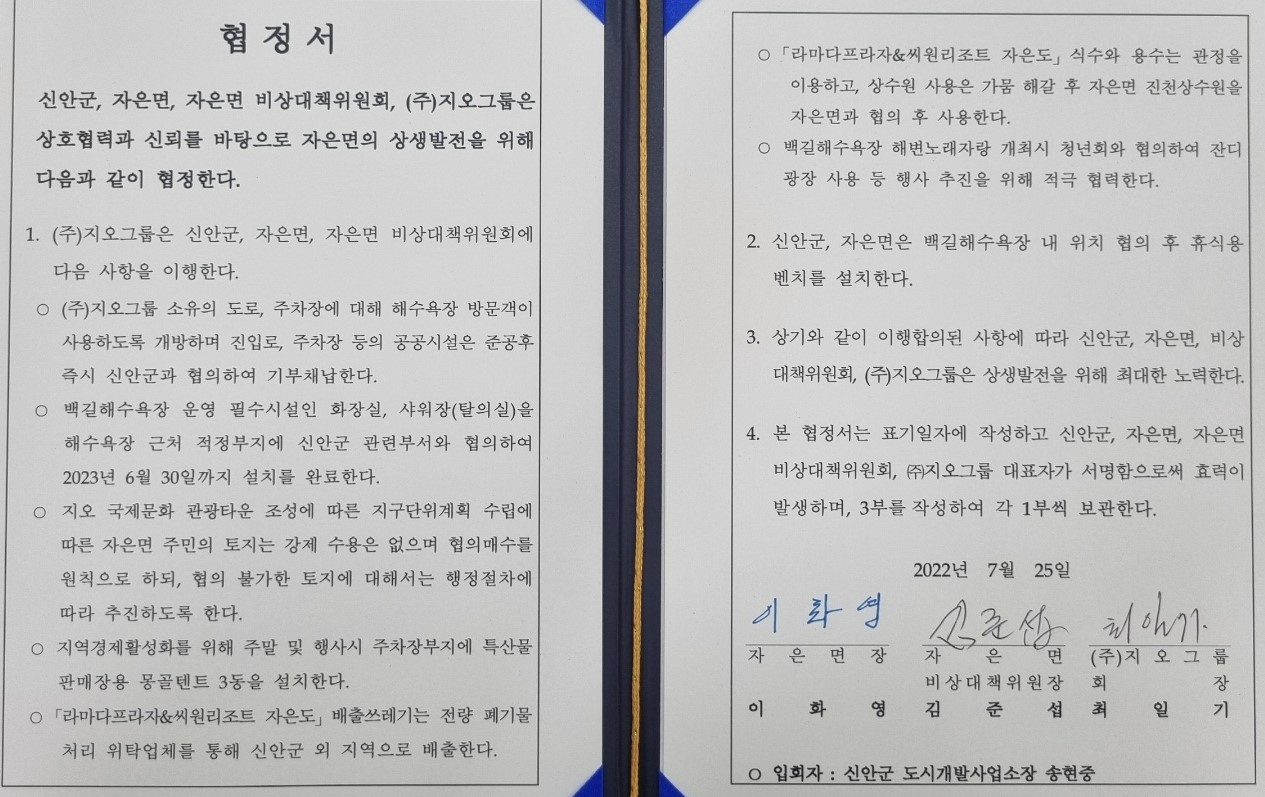 협 정 서
신안군, 자은면, 자은면 비상대책위원회, (주)지오그룹은
상호협력과 신뢰를 바탕으로 자은면의 상생발전을 위해
다음과 같이 협정한다.
1. (주)지오그룹은 신안군, 자은면, 자은면 비상대책위원회에
다음 사항을 이행한다.
○ (주)지오그룹 소유의 도로, 주차장에 대해 해수욕장 방문객이
사용하도록 개방하며 진입로, 주차장 등의 공공시설은 준공후
즉시 신안군과 협의하여 기부채납한다.
○ 백길해수욕장 운영 필수시설인 화장실, 샤워장(탈의실)을
해수욕장 근처 적정부지에 신안군 관련부서와 협의하여
2023년 6월 30일까지 설치를 완료한다.
○ 지오 국제문화 관광타운 조성에 따른 지구단위계획 수립에
따른 자은면 주민의 토지는 강제 수용은 없으며 협의매수를
원칙으로 하되, 협의 불가한 토지에 대해서는 행정절차에
따라 추진하도록 한다.
○ 지역경제활성화를 위해 주말 및 행사시 주차장부지에 특산물
판매장용 몽골텐트 3동을 설치한다.
○ 「라마다프라자&씨원리조트 자은도」 배출쓰레기는 전량 폐기물
처리 위탁업체를 통해 신안군 외 지역으로 배출한다.
○ 「라마다프라자&씨원리조트 자은도」 식수와 용수는 관정을
이용하고, 상수원 사용은 가뭄 해갈 후 자은면 진천상수원을
자은면과 협의 후 사용한다.
○ 백길해수욕장 해변노래자랑 개최시 청년회와 협의하여 잔디
광장 사용 등 행사 추진을 위해 적극 협력한다.
2. 신안군, 자은면은 백길해수욕장 내 위치 협의 후 휴식용
벤치를 설치한다.
3. 상기와 같이 이행합의된 사항에 따라 신안군, 자은면, 비상
대책위원회, (주)지오그룹은 상생발전을 위해 최대한 노력한다.
4. 본 협정서는 표기일자에 작성하고 신안군, 자은면, 자은면
비상대책위원회, ㈜지오그룹 대표자가 서명함으로써 효력이
발생하며, 3부를 작성하여 각 1부씩 보관한다.
2022년 7월 25일
이 화 영 김 준 섭 최 일 기
자 은 면 장 자 은 면 (주)지 오 그 룹
비상대책위원장 회 장
이 화 영 김 준 섭 최 일 기
○ 입회자 : 신안군 도시개발사업소장 송현중